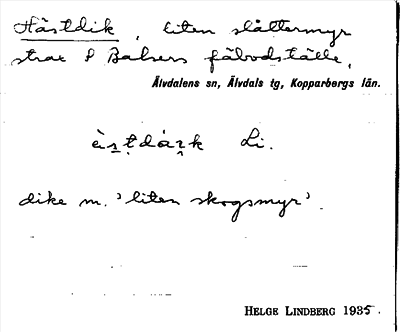 Hästdik, liten slåttermyr
strax S Balsers fäbodställe,
Älvdalens sn, Älvdals tg, Kopparbergs län.
Li.
dike m. 'liten skogsmyr'.
HELGE LINDBERG 1935.